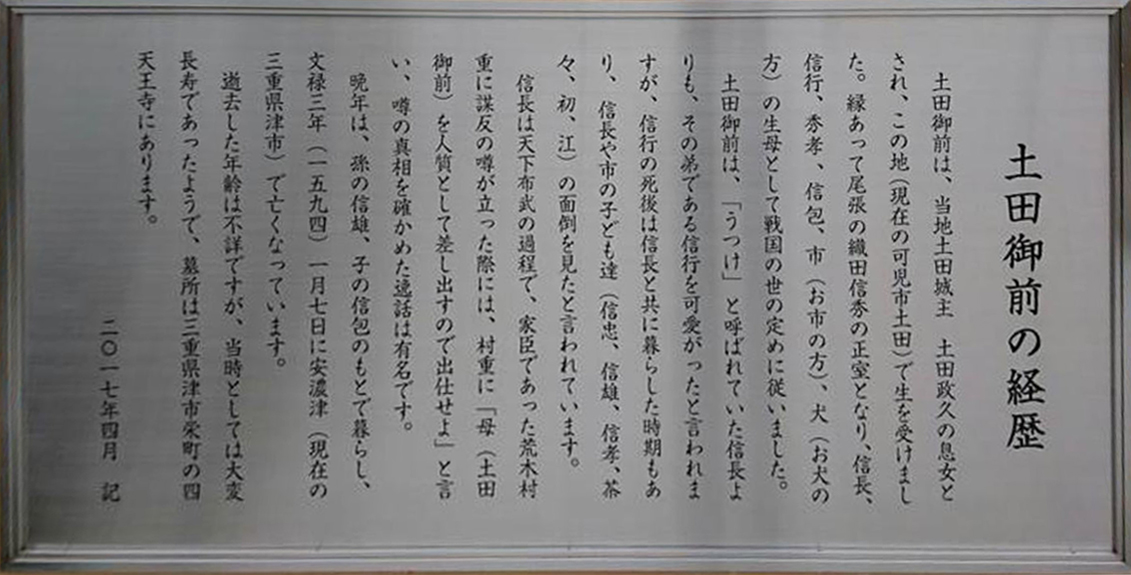 土田御前の経歴
土田御前は、当地土田城主　土田政久の息女と
され、この地(現在の可児市土田)で生を受けまし
た。縁あって尾張の織田信秀の正室となり、信長、
信行、秀孝、信包、市（お市の方）、犬（お犬の
方）の生母として戦国の世の定めに従いました。
土田御前は、「うつけ」と呼ばれていた信長よ
りも、その弟である信行を可愛がったと言われま
すが、信行の死後は信長と共に暮らした時期もあ
り、信長や市の子ども達（信忠、信雄、信孝、茶
々、初、江）の面倒を見たと言われています。
信長は天下布武の過程で、家臣であった荒木村
重に謀反の噂が立った際には、村重に「母（土田
御前）を人質として差し出すので出仕せよ」と言
い、噂の真相を確かめた逸話は有名です。
晩年は、孫の信雄、子の信包のもとで暮らし、
文禄三年（一五九四）一月七日に安濃津（現在の
三重県津市）で亡くなっています。
逝去した年齢は不詳ですが、当時としては大変
長寿であったようで、墓所は三重県津市栄町の四
天王寺にあります。
二〇一七年四月　記